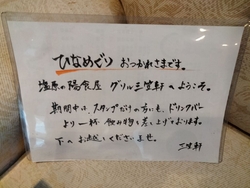 ひなめぐり おつかれさまです。
塩原の陽食屋 グリル三笠軒へようこそ。
期間中は、スタンプだけの方にも、ドリンクバー
より一杯飲み物を差し上げております。
下へお越しくださいませ。
三笠軒